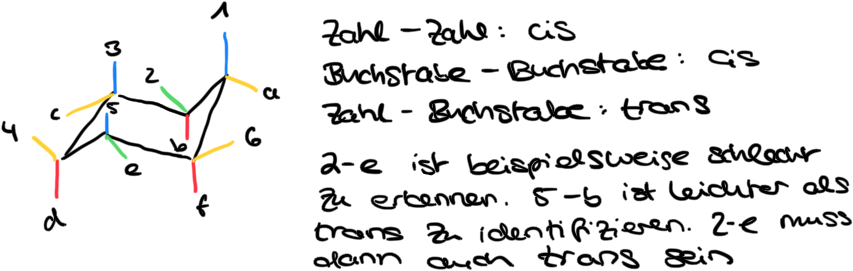 1
3
2
a
c
5
4
b
6
e
d
f
Zahl - Zahl: cis
Buchstabe - Buchstabe: cis
Zahl - Buchstabe: trans
2-e ist beispielsweise schlecht
zu erkennen. 5-b ist leichter als
trans zu identifizieren. 2-e muss
dann auch trans sein